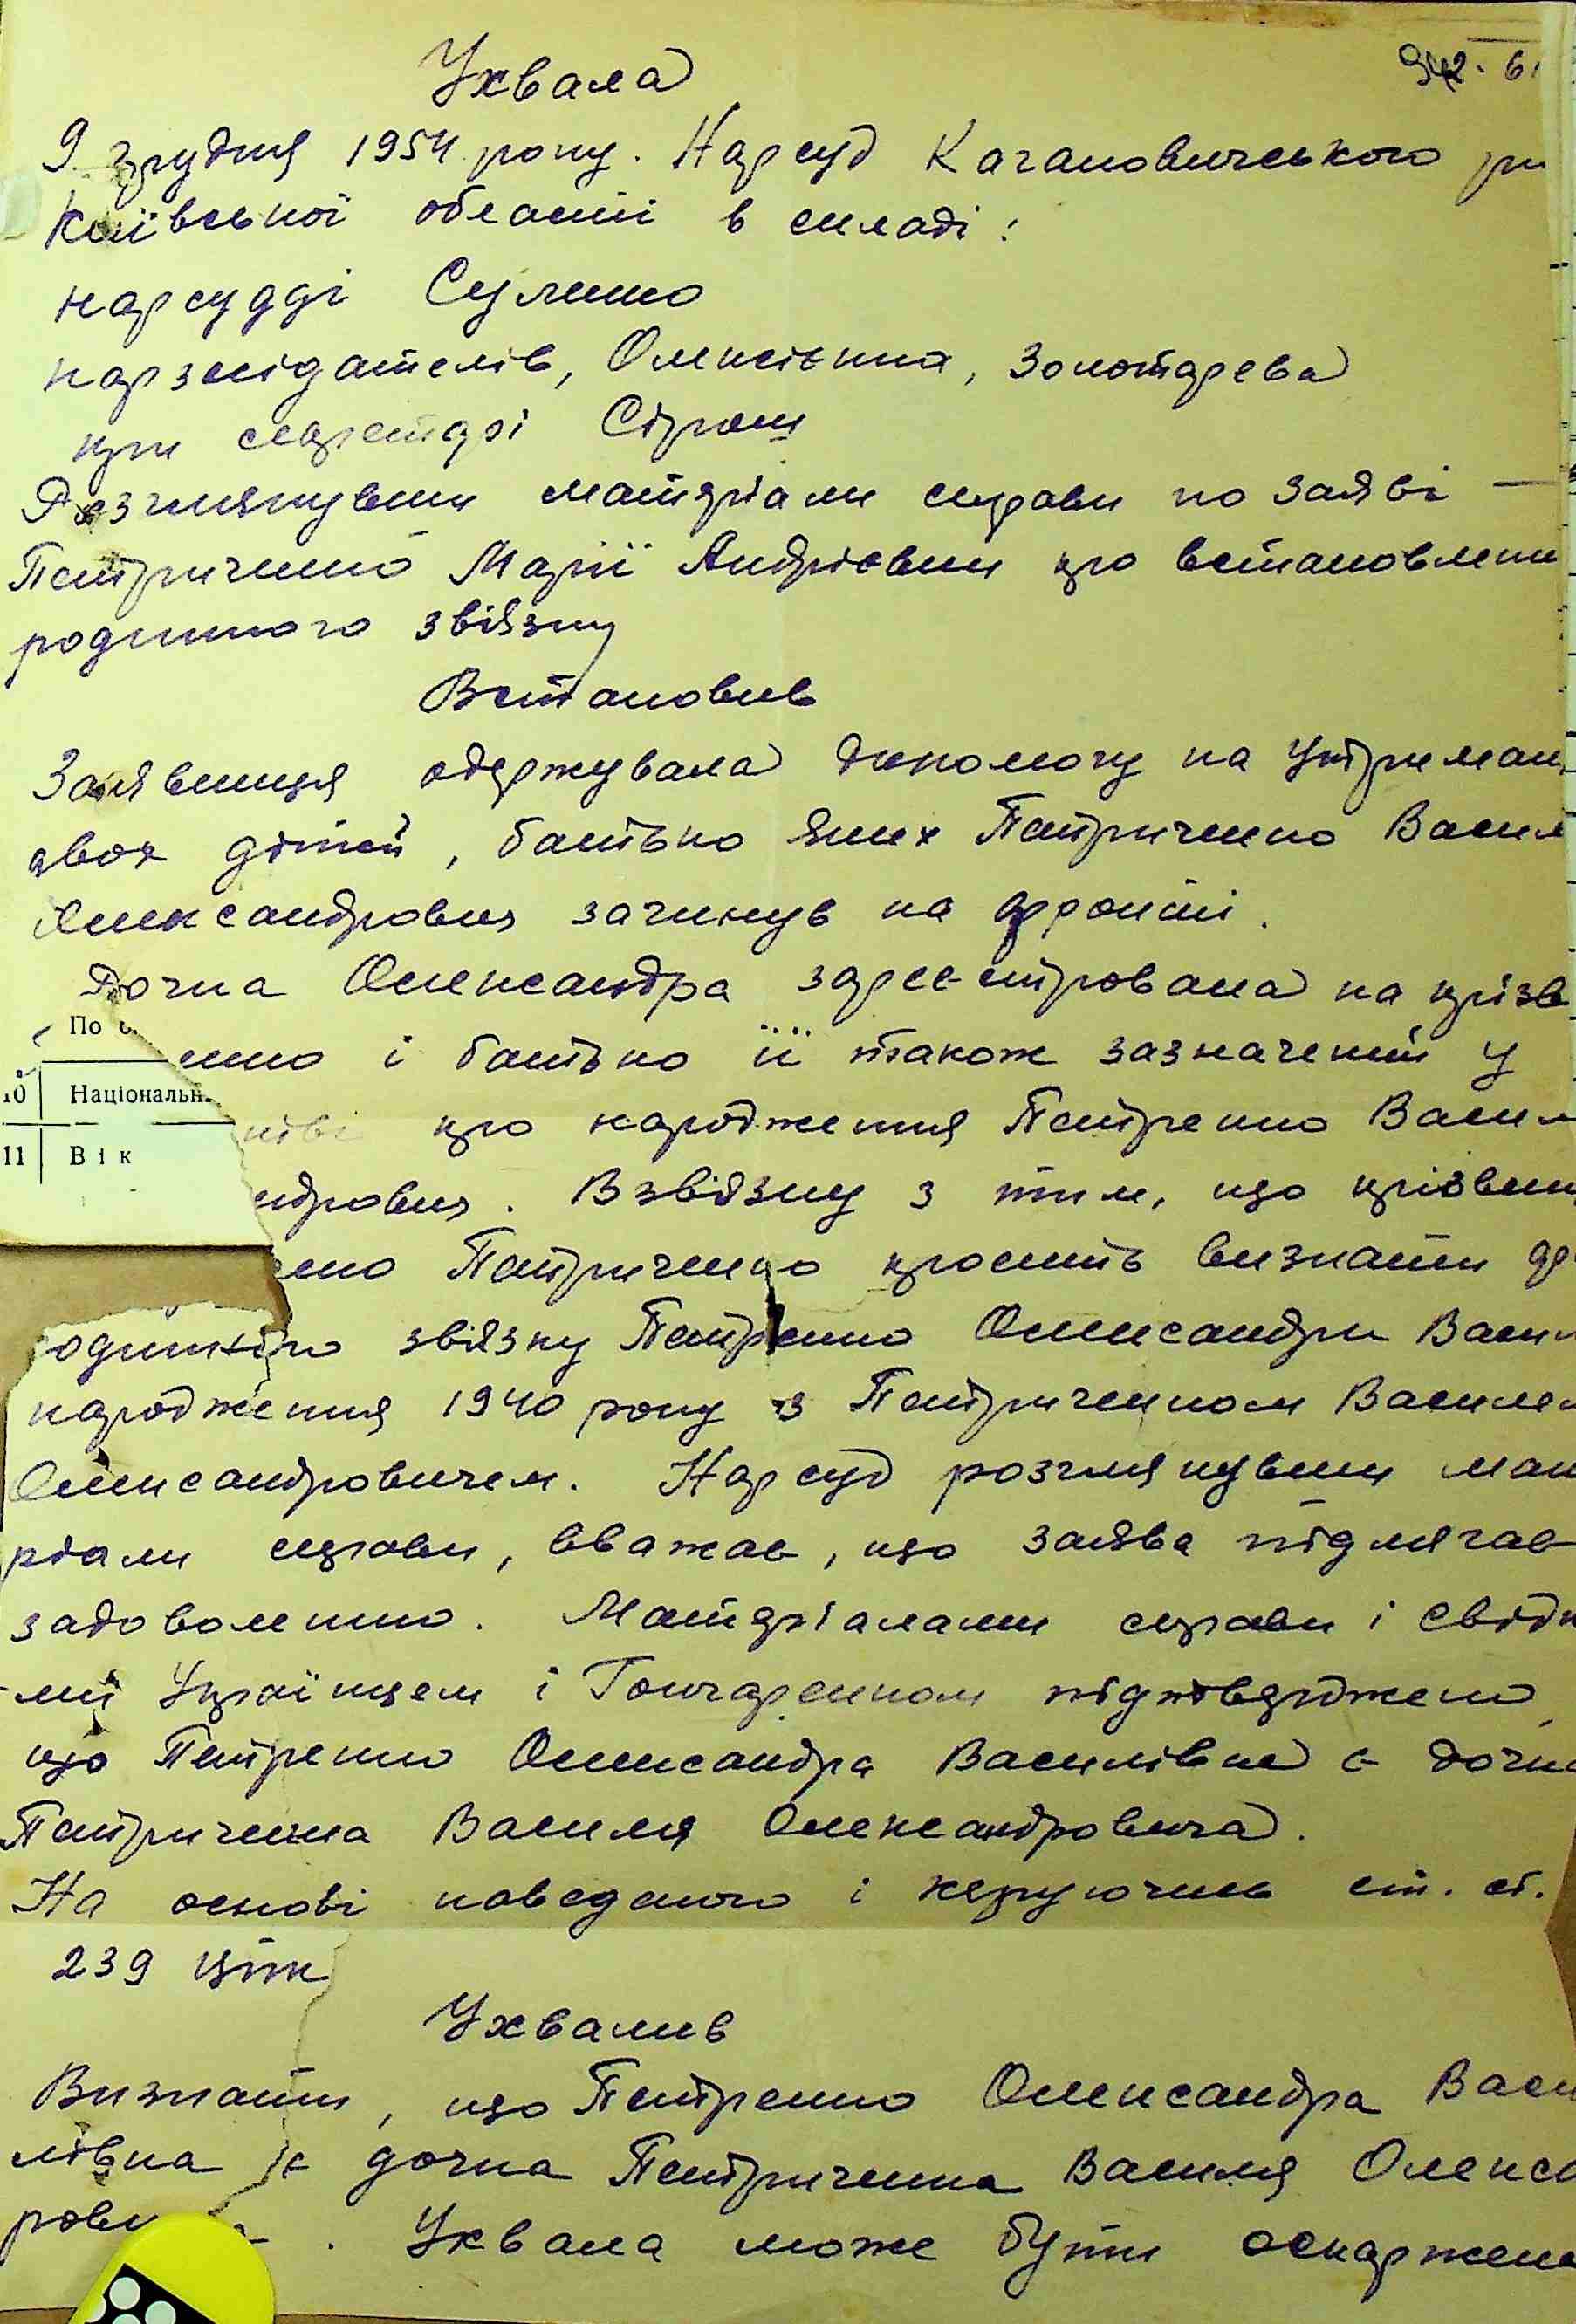 Ухвала
9 грудня 1954 року. Нарсуд Кагановичського
Київської області в складі:
нарсудді
нарзасідателів, Олексієнка, Золотарева
при секретарі
Розглянувши матеріали справи по заяві —
Петриченко Марії Андрієвни про встановлени
родинного звіязку
Встановив
Заявниця одержувала допомогу на утриман
двох дітей, батько яких Петриченко Васил
Олександрович загинув на фронті.
Дочка Олександра зареєстрована на прізв
По
енко і батько її також зазначений у
10 Національн
цтві про народження Петренко Васил
11 Вік
ндрович. Взвіязку з тим, що прізвищ
Петриченко просить визнати
одинного звіязку Петренко Олександри Васил
народження 1940 року з Петриченком Василем
Олександровичем. Нарсуд розглянувши мат
ріали справи, вважає, що заява підлягає
задоволенню. Матеріалами справи і свідк
-ми Українцем і Гончаренком підтверджено,
що Петренко Олександра Василівна є дочка
Петриченка Василя Олександровича.
На основі наведеного і керуючись ст. ст.
239 ЦПК
Ухвалив
Визнати, що Петренко Олександра Васи
лівна є дочка Петриченка Василя Олекса
рови . Ухвала може бути оскаржена